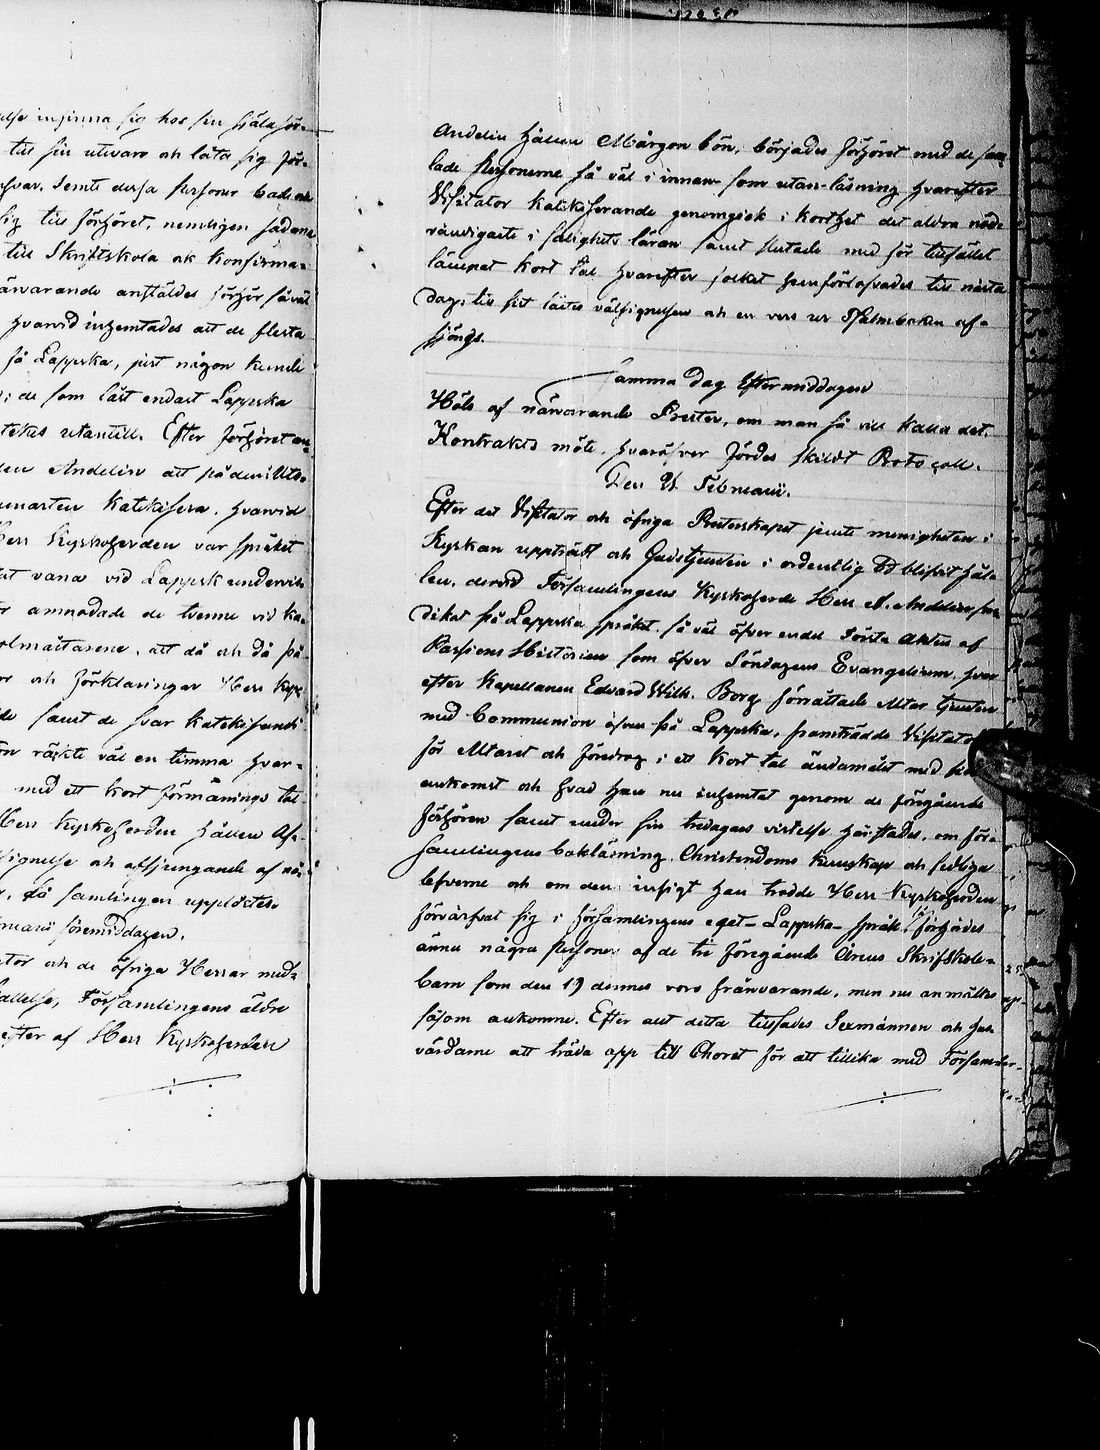 else infinna sig hos sin själasör-
till sin utevaro och låta sig för-
svar. Jemte dessa personer både
sig till förhöret, nemligen sådane
till Skriftskola ok konfirma-
närvarande anställdes förhör så väl
hvarvid inhemtades att de flesta
på Lappska, just någon kunde
; de som läst endast Lappska
utantill. Efter förhöret an-
den Andelin att på den: Uts-
Katekisera, hvarvid
Herr Kyrkoherden var språket
vana vid Lappsk undervis-
amnodade de tvenne vid Ka-
olmästarene, att då och då på-
och förklaringar Herr Kyr-
de samt de svar Katekisandi
räckte väl en timma hvar-
med ett kort förmånings tal
Herr Kyrkoherden hållen Af-
signelse och afsjungande af nå-
då samlingen upplöstes.
ruarii föremiddagen.
ator och de öfriga Herrar med-
kallelse, Församlingens äldre
efter af Herr Kyrkoherden
Andelin hållen Mårgon bön, börjades förhöret med de sam-
lade Personerne så väl i innan- som utan-läsning hvarefter
Visitator Katekiserande genomgick i korthet det aldra nöd-
vändigaste i salighets läran samt slutade med för tillfället
lämpat kort Tal hvarefter folket hemförlofvades till nästa
dag; till sist lästes välsignelsen och en vers ur Psalmboken af-
sjöngs.
Samma dag Eftermiddagen
Hölts af närvarande Prester, om man så vill kalla det,
Kontrakts möte, hvaröfver fördes skildt Protocoll.
Den 21 Februarii.
Efter det Visitator och öfriga Presterskapet jemte menigheten i
Kyrkan uppträdt och Gudstjensten i ordentlig tid blifvit hål-
len, dervid Församlingens Kyrkoherde Herr A. Andelin pre-
dikat på Lappska språket, så väl öfver endel Första Akten af
Passions Historien som öfver Söndagens Evangelium, hvar-
efter Kapellanen Edvard Wilh. Borg förrättade Altar tjensten
med Communion äfven på Lappska, framträdde Visitator
för Altaret och föredrog i ett kort tal ändamålet med sin
ankomst och hvad han nu inhemtat genom de föregående
förhören samt under sin tredagars vistelse härstades, om för-
samlingens bokläsning, Christendoms kunskap och sedliga
lefverne och om den insigt han trodde Herr Kyrkoherden
förvärfvat sig i församlingens eget- Lappska- språk, förhördes
ännu några personer af de tre föregående årens Skriftskole-
barn som den 19 dennes voro frånvarande, men nu anmältes
såsom ankomne. Efter allt detta tillsades Sexmännen och Hus
värdarne att träda opp till Choret för att tillika med Försam-